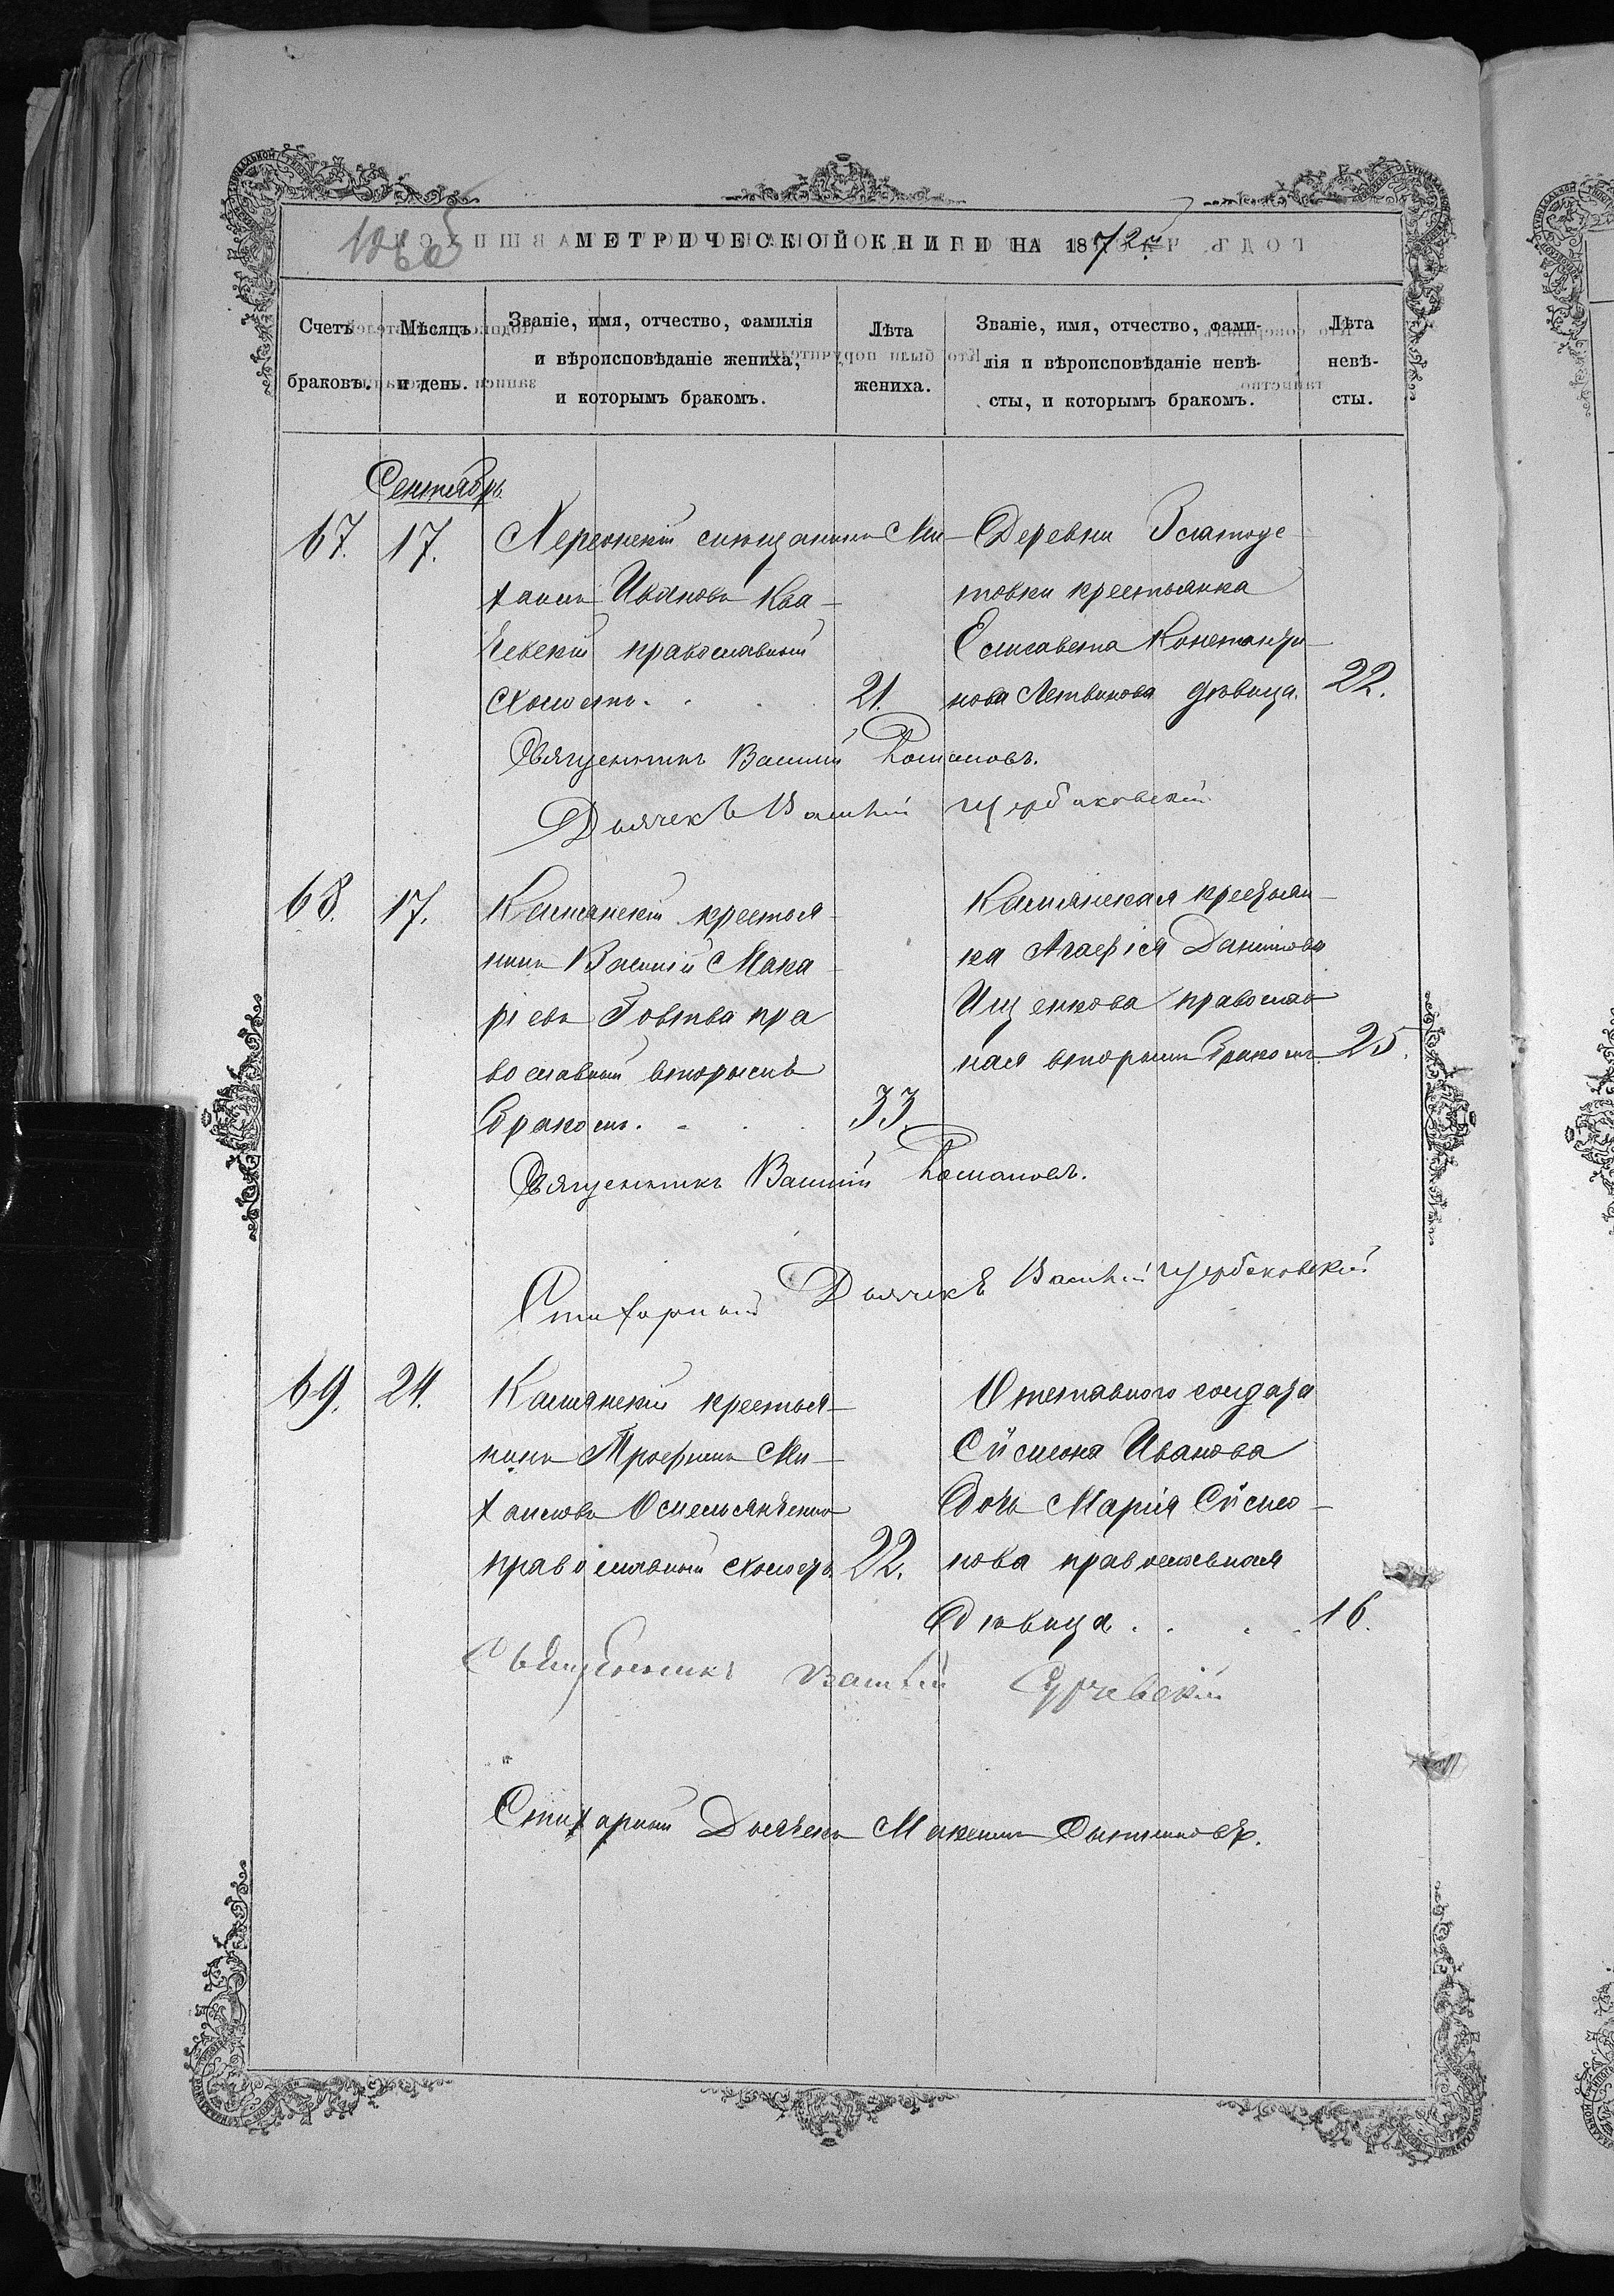 МЕТРИЧЕСКОЙ КНИГИ НА 1872 г.
Счетъ браковъ.
Мѣсяцъ и день.
Званіе, имя, отчество, фамилія
и вѣроисповѣданіе жениха,
и которымъ бракомъ.
Лѣта
жениха.
Званіе, имя, отчество, фами-
лія и вѣроисповѣданіе невѣ-
сты, и которымъ бракомъ.
Лѣта
невѣ-
сты.
Сентябрь
67. 17.
Херсонскій мѣщанинъ Ми-
хаилъ Ивановъ Ква-
чевскій православный
холостъ. 21.
Деревни Златоус-
товки крестьянка
Елисавета Константи-
нова Летвинова дѣвица. 22.
Священникъ Василій Романовъ.
Дьячекъ Василій Щербаковскій
68. 17.
Камянскій крестья-
нинъ Василій Мака-
ріевъ Говтва пра
вославный вторымъ
бракомъ. 33.
Камянская крестьян-
ка Агафія Данилова
Ищенкова православ
ная вторымъ бракомъ 25.
Священникъ Василій Романовъ.
Стихарный Дьячекъ Василій Щербаковскій
69. 24.
Камянскій крестья-
нинъ Трофимъ Ми-
хаиловъ Омельянченко
православный холостъ 22.
Отставного солдата
Сѵмеона Иванова
дочь Марія Сѵмео-
нова православная
дѣвица. 16.
Священникъ Василій
Стихарный Дьячекъ Максимъ